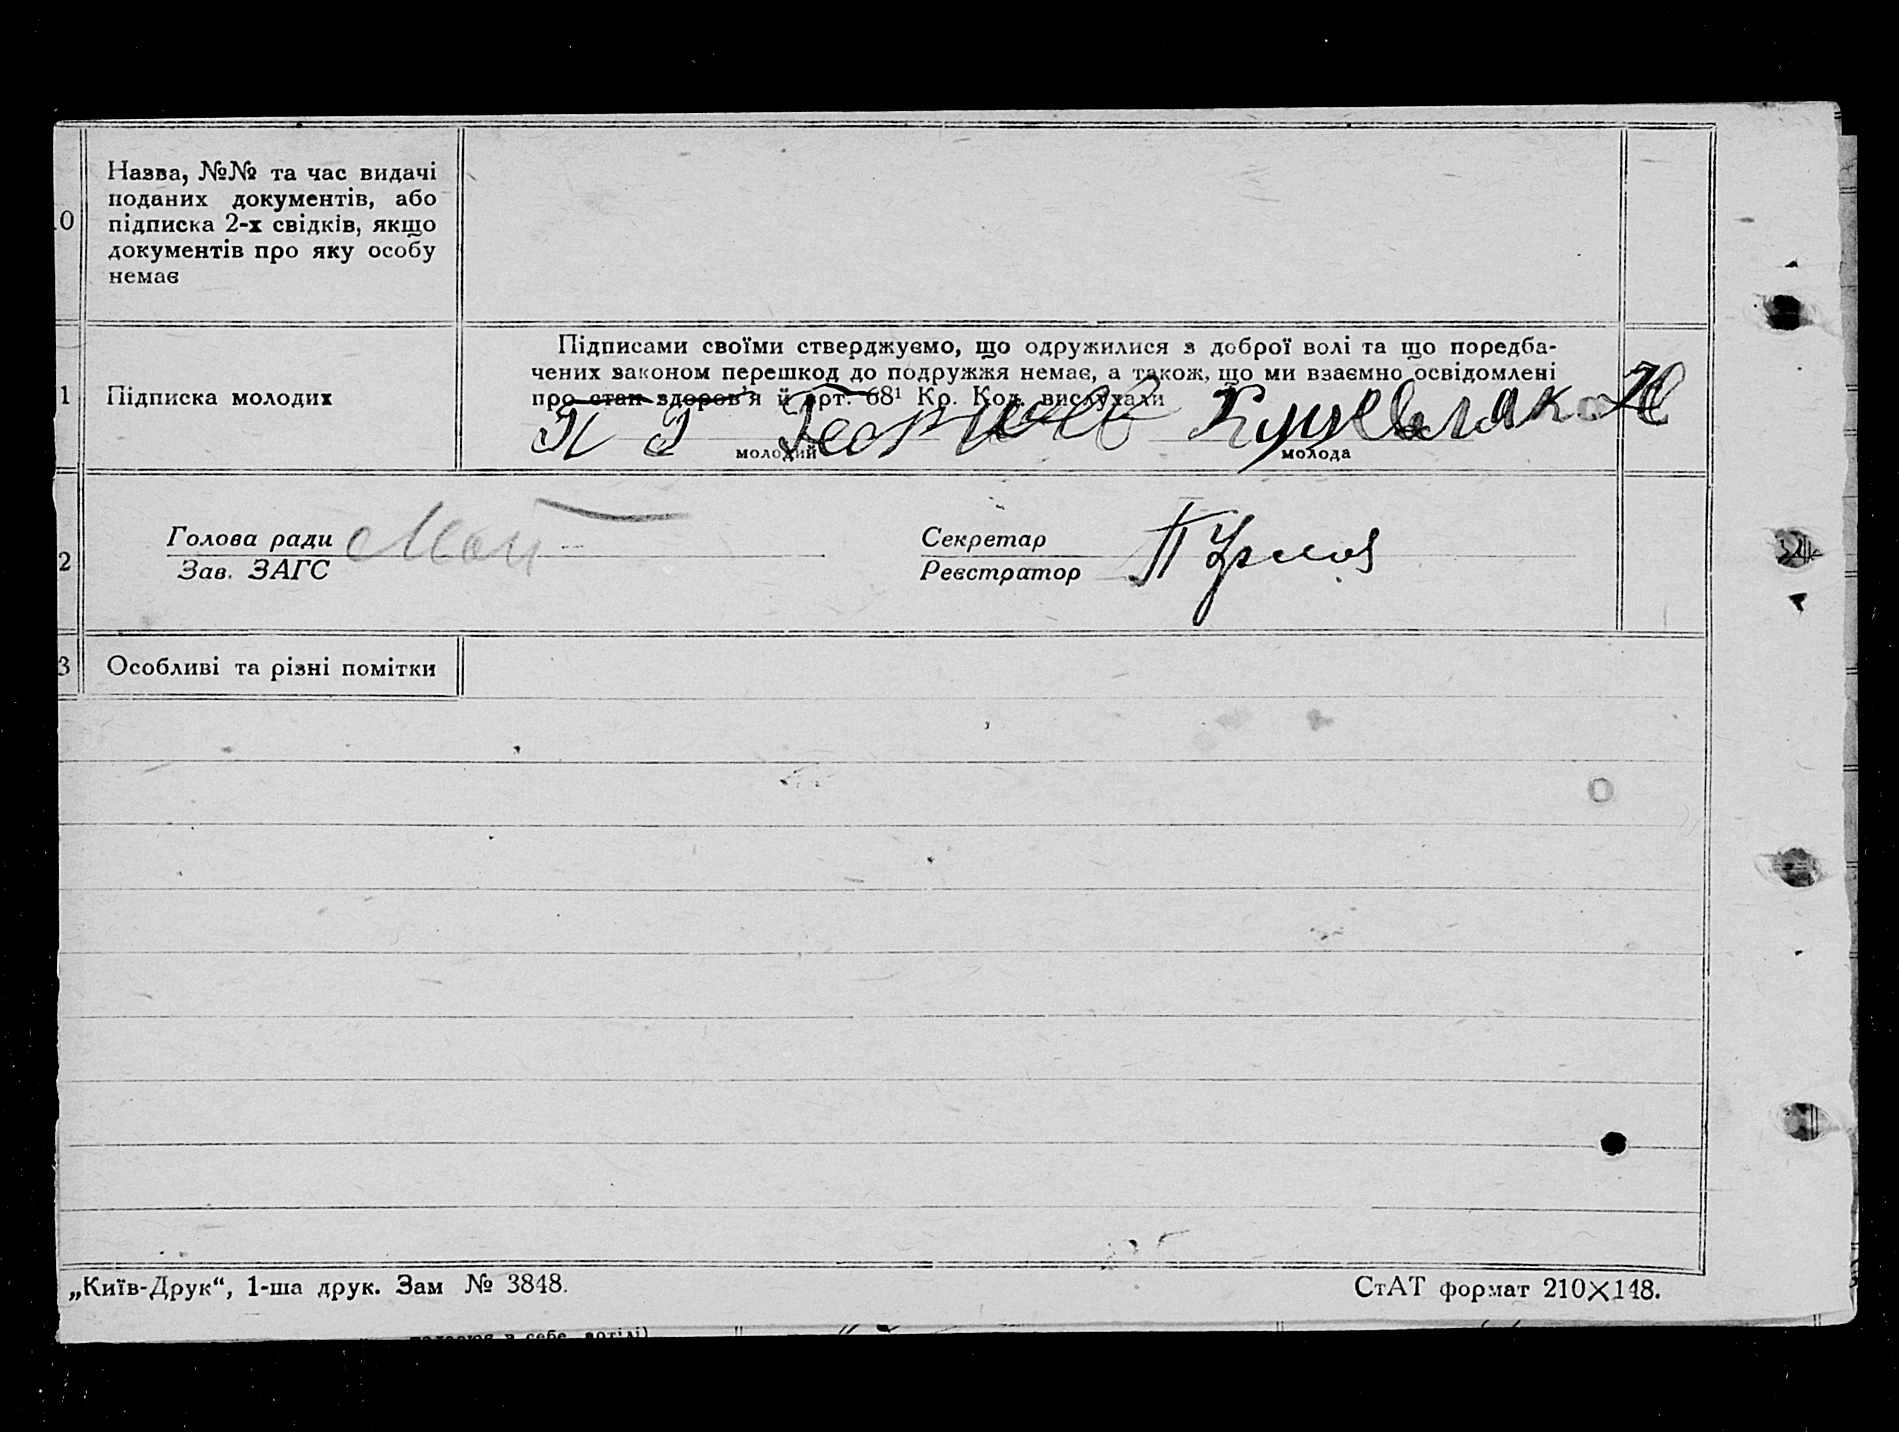 0
Назва, №№ та час видачі
поданих документів, або
підписка 2-х свідків, якщо
документів про яку особу
немає
1
Підписка молодих
Підписами своїми стверджуємо, що одружилися з доброї волі та що поредба-
чених законом перешкод до подружжя немає, а також, що ми взаємно освідомлені
про стан здоров'я й арт. 68¹ Кр. Код. вислухали
молодий
молода
2
Голова ради
Зав. ЗАГС
Секретар
Реєстратор
3
Особливі та різні помітки
„Київ-Друк“, 1-ша друк. Зам № 3848.
СтАТ формат 210×148.